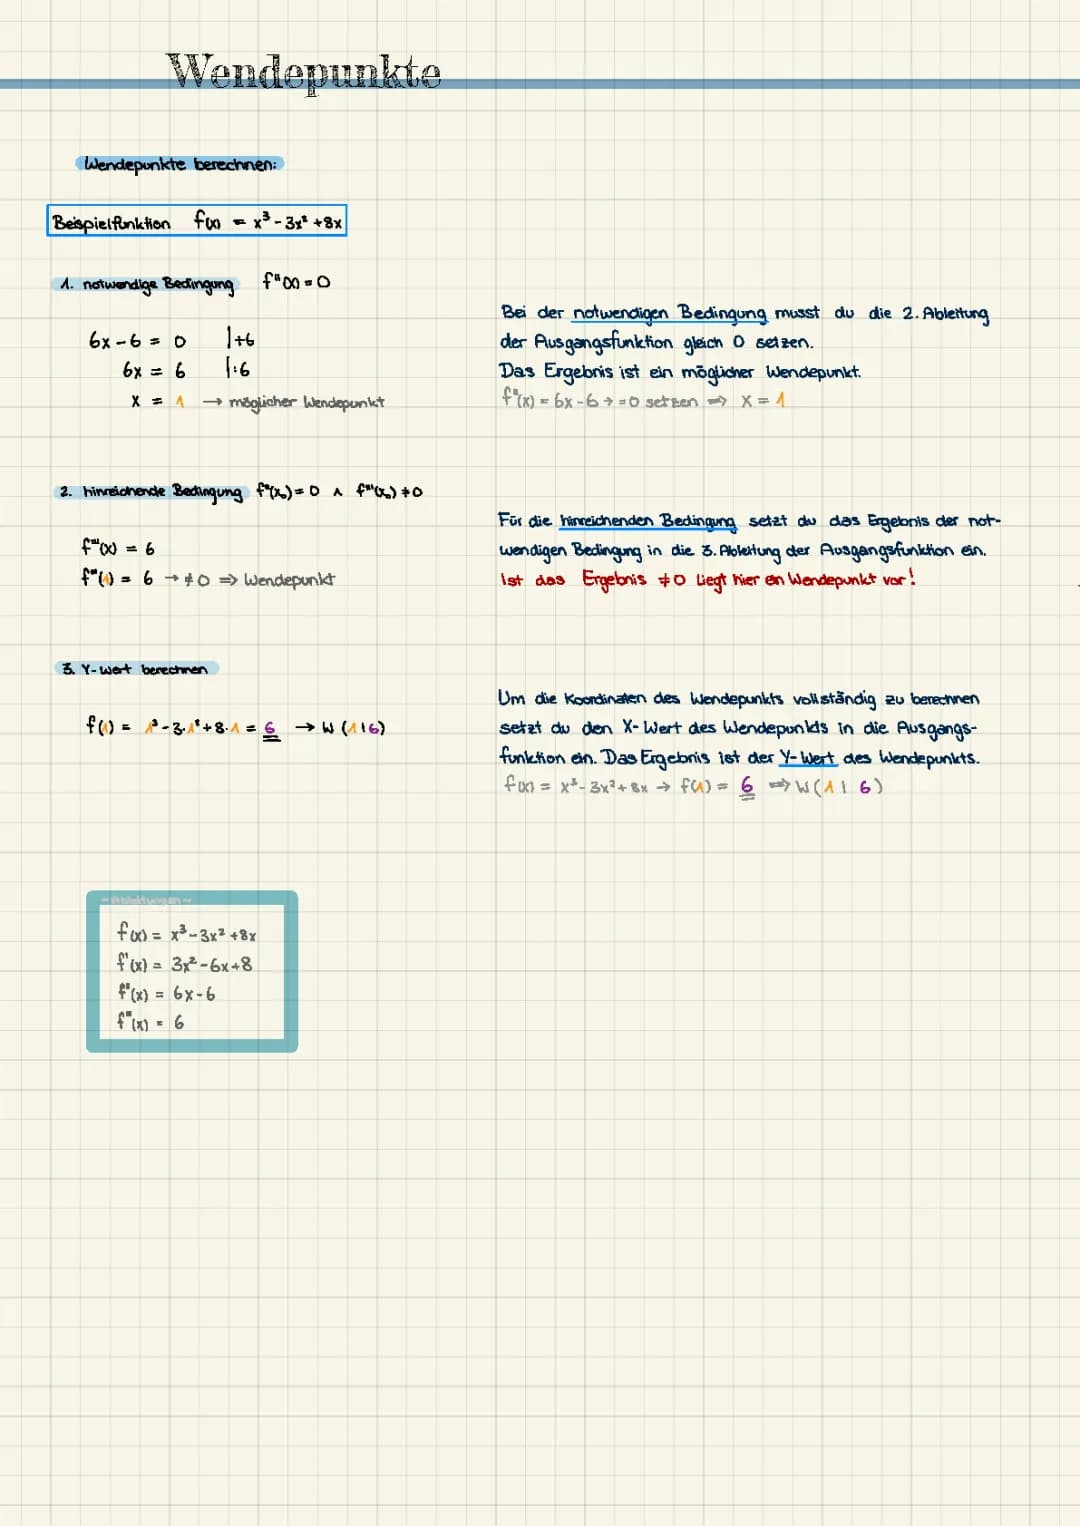 Wendepunkte
Wendepunkte berechnen:
Beispielfunktion f(x) = x³ - 3x² + 8x
1. notwendige Bedingung f"(x) = 0
6x - 6 = 0 |+6
6x = 6 |:6
x = 1 → möglicher Wendepunkt
Bei der notwendigen Bedingung musst du die 2. Ableitung
der Ausgangsfunktion gleich 0 setzen.
Das Ergebnis ist ein möglicher Wendepunkt.
f"(x) = 6x - 6 → = 0 setzen ⇒ X = 1
2. hinreichende Bedingung f"(x₀) = 0 ∧ f"'(x₀) ≠ 0
f"'(x) = 6
f"'(1) = 6 → ≠ 0 ⇒ Wendepunkt
Für die hinreichenden Bedingung setzt du das Ergebnis der not-
wendigen Bedingung in die 3. Ableitung der Ausgangsfunktion ein.
Ist das Ergebnis ≠ 0 Liegt hier ein Wendepunkt vor!
3. Y-Wert berechnen
f(1) = 1³ - 3·1² + 8·1 = 6 → W (1|6)
Um die Koordinaten des Wendepunkts vollständig zu berechnen
setzt du den X-Wert des Wendepunkts in die Ausgangs-
funktion ein. Das Ergebnis ist der Y-Wert des Wendepunkts.
f(x) = x³ - 3x² + 8x → f(1) = 6 ⇒ W (1 | 6)
- Ableitungen -
f(x) = x³ - 3x² + 8x
f'(x) = 3x² - 6x + 8
f"(x) = 6x - 6
f"'(x) = 6